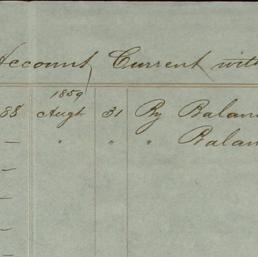 Account Current with
1859
88 Augt 31 By Balan
— " " " Balan
—
—
—
—